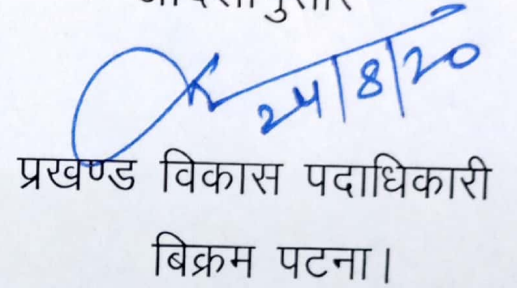 24/8/20
प्रखण्ड विकास पदाधिकारी
बिक्रम पटना।